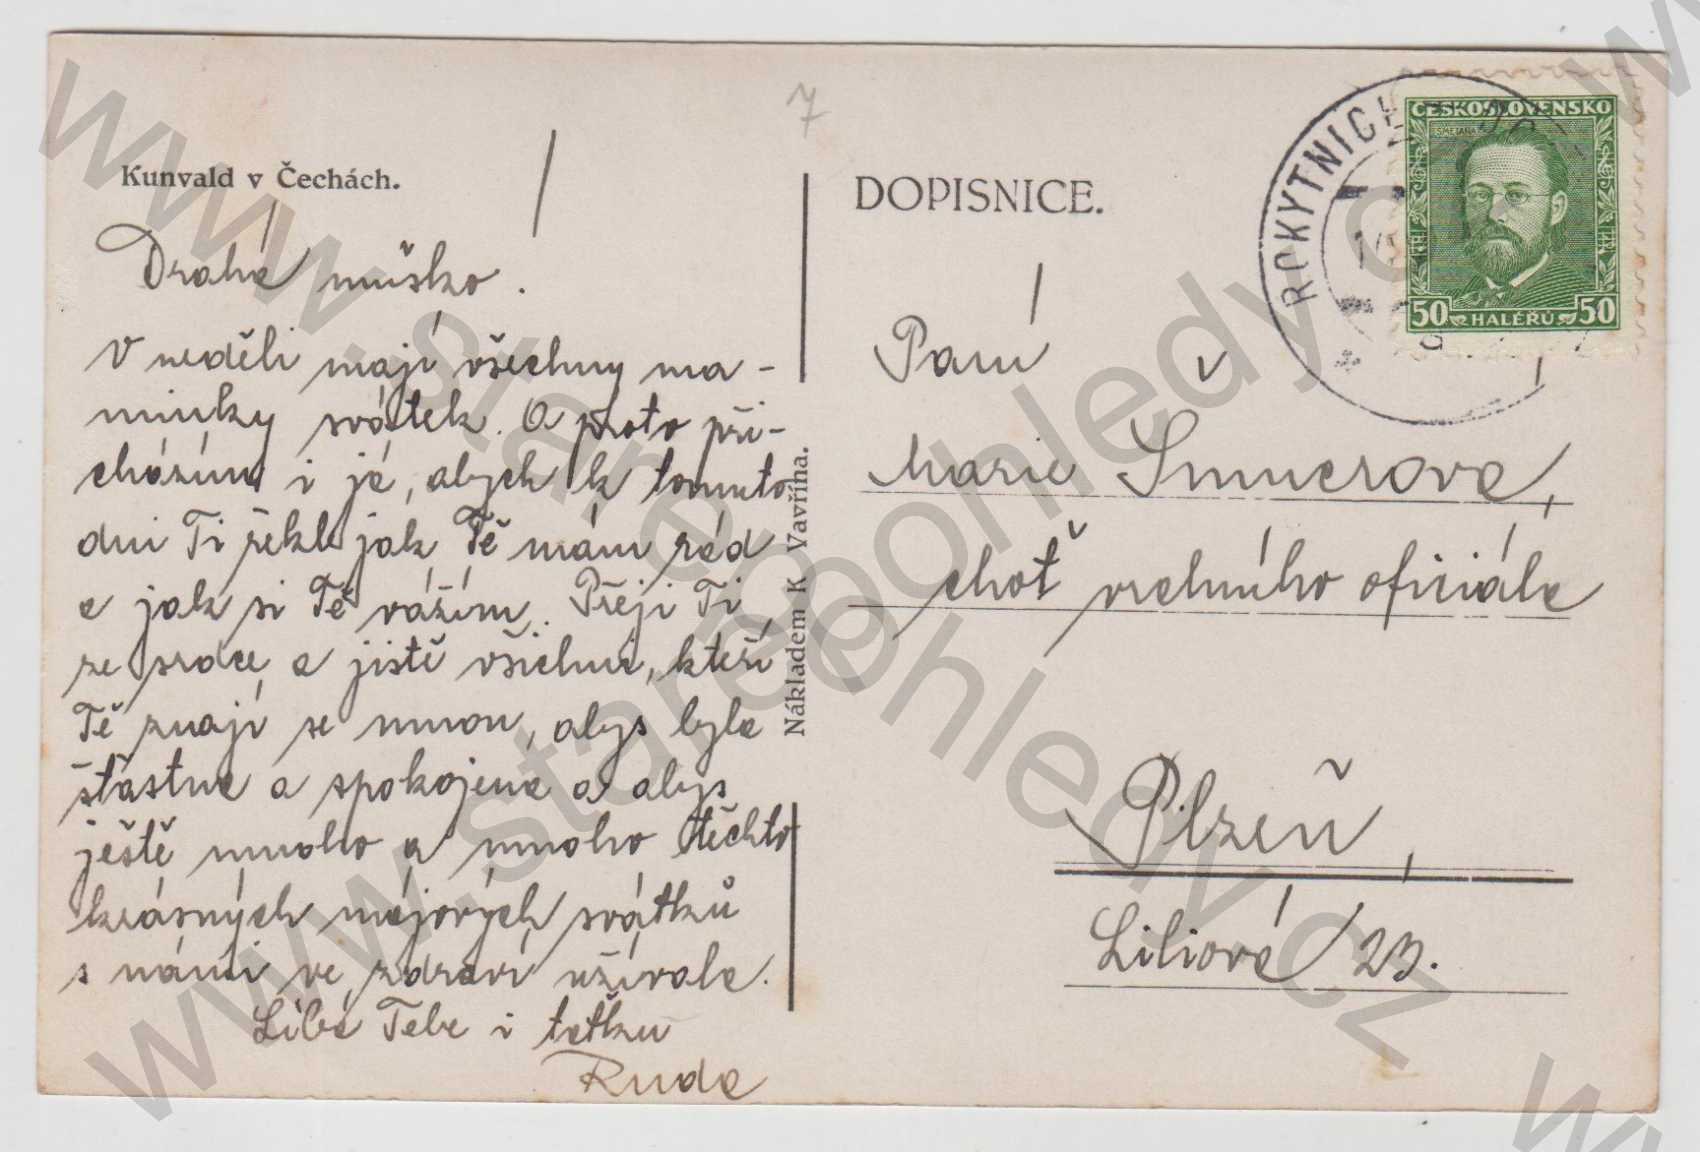 Kunvald v Čechách.
Drahá muško.
V neděli mají všechny ma-
minky svátek. A proto při-
cházím i já, abych k tomuto
dni Ti řekl jak Tě mám rád
a jak si Tě vážím. Přeji Ti
ze srdce a jistě všichni, kteří
Tě znají se mnou, abys byla
šťastna a spokojena a abys
ještě mnoho a mnoho těchto
krásných májových svátků
s námi ve zdraví užívala.
Líbá Tebe i tetku
Ruda
Nákladem K Vavřína.
7
DOPISNICE.
ROKYTNICE
ČESKOSLOVENSKO
SMETANA
50 HALÉŘŮ 50
Paní
Marie
choť vrchního oficiála
Plzeň,
Liliová 23.
www.starepohledy.cz
www.starepohledy.cz